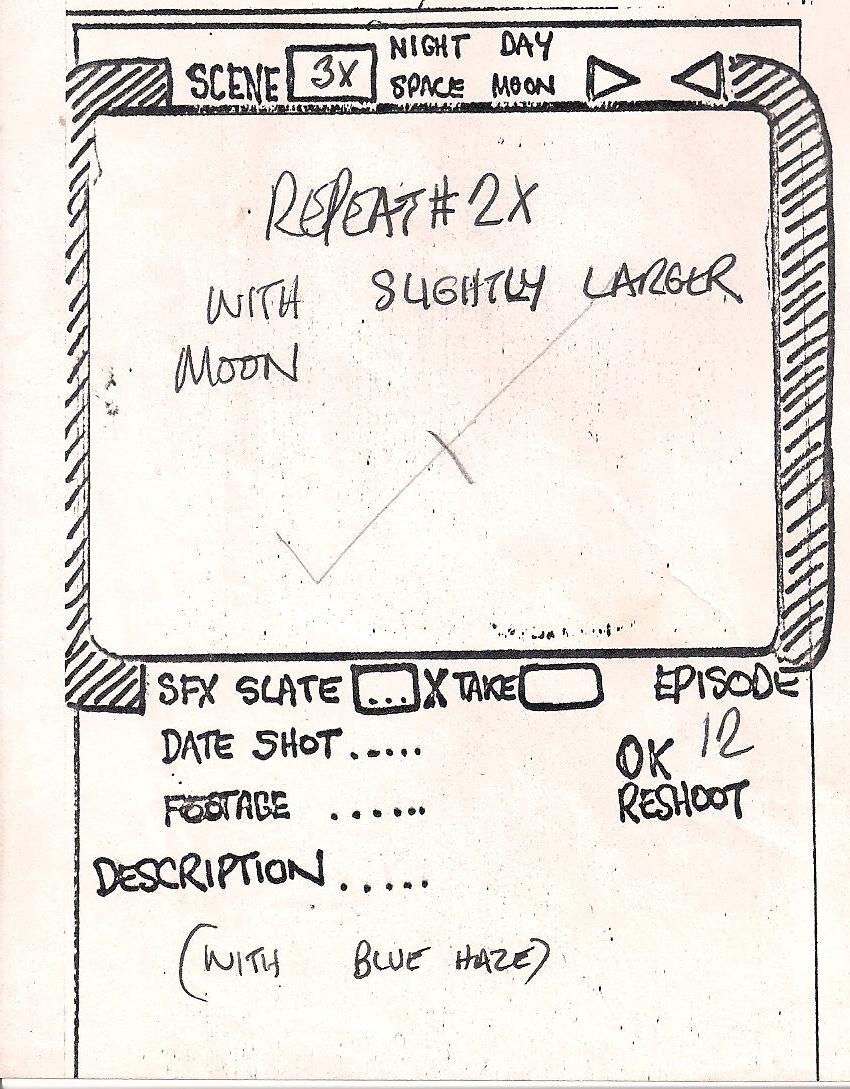 SCENE 3X NIGHT DAY
SPACE MOON
REPEAT # 2X
WITH SLIGHTLY LARGER
MOON
SFX SLATE ... X TAKE EPISODE
DATE SHOT ..... OK 12
FOOTAGE ...... RESHOOT
DESCRIPTION .....
(WITH BLUE HAZE)